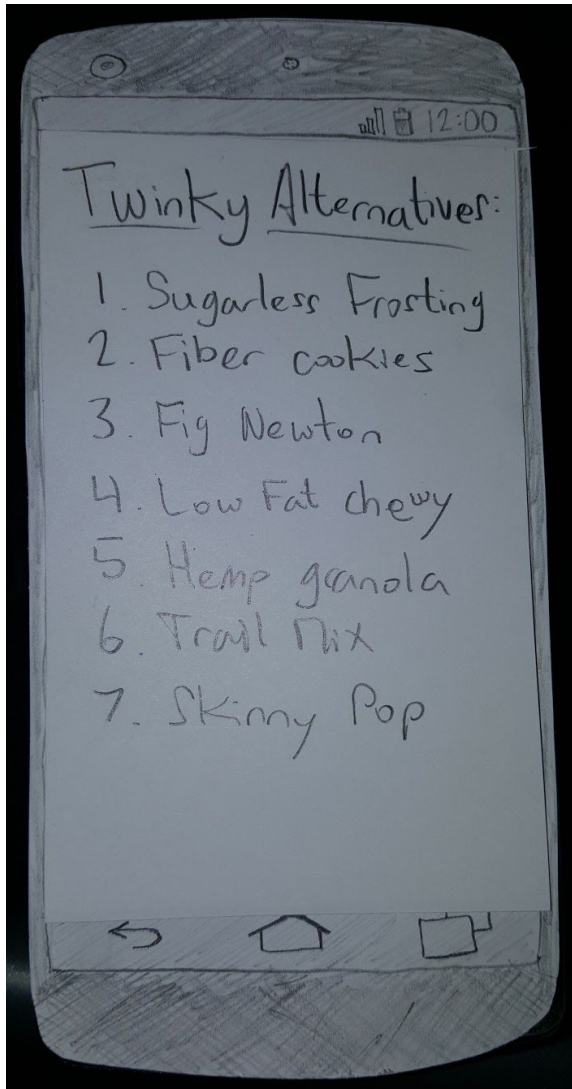 12:00
Twinky Alternatives:
1. Sugarless Frosting
2. Fiber cookies
3. Fig Newton
4. Low Fat chewy
5. Hemp granola
6. Trail Mix
7. Skinny Pop